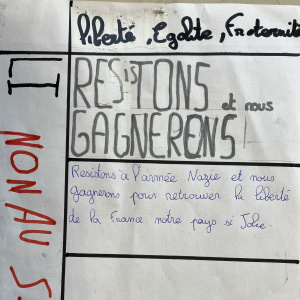 liberté, Egalite, Fraternité
RESisTONS et nous
GAGNERONS!
Resistons à l'armée Nazie et nous
gagnerons pour retrouver la liberté
de la France notre pays si Jolie.
NON AU S